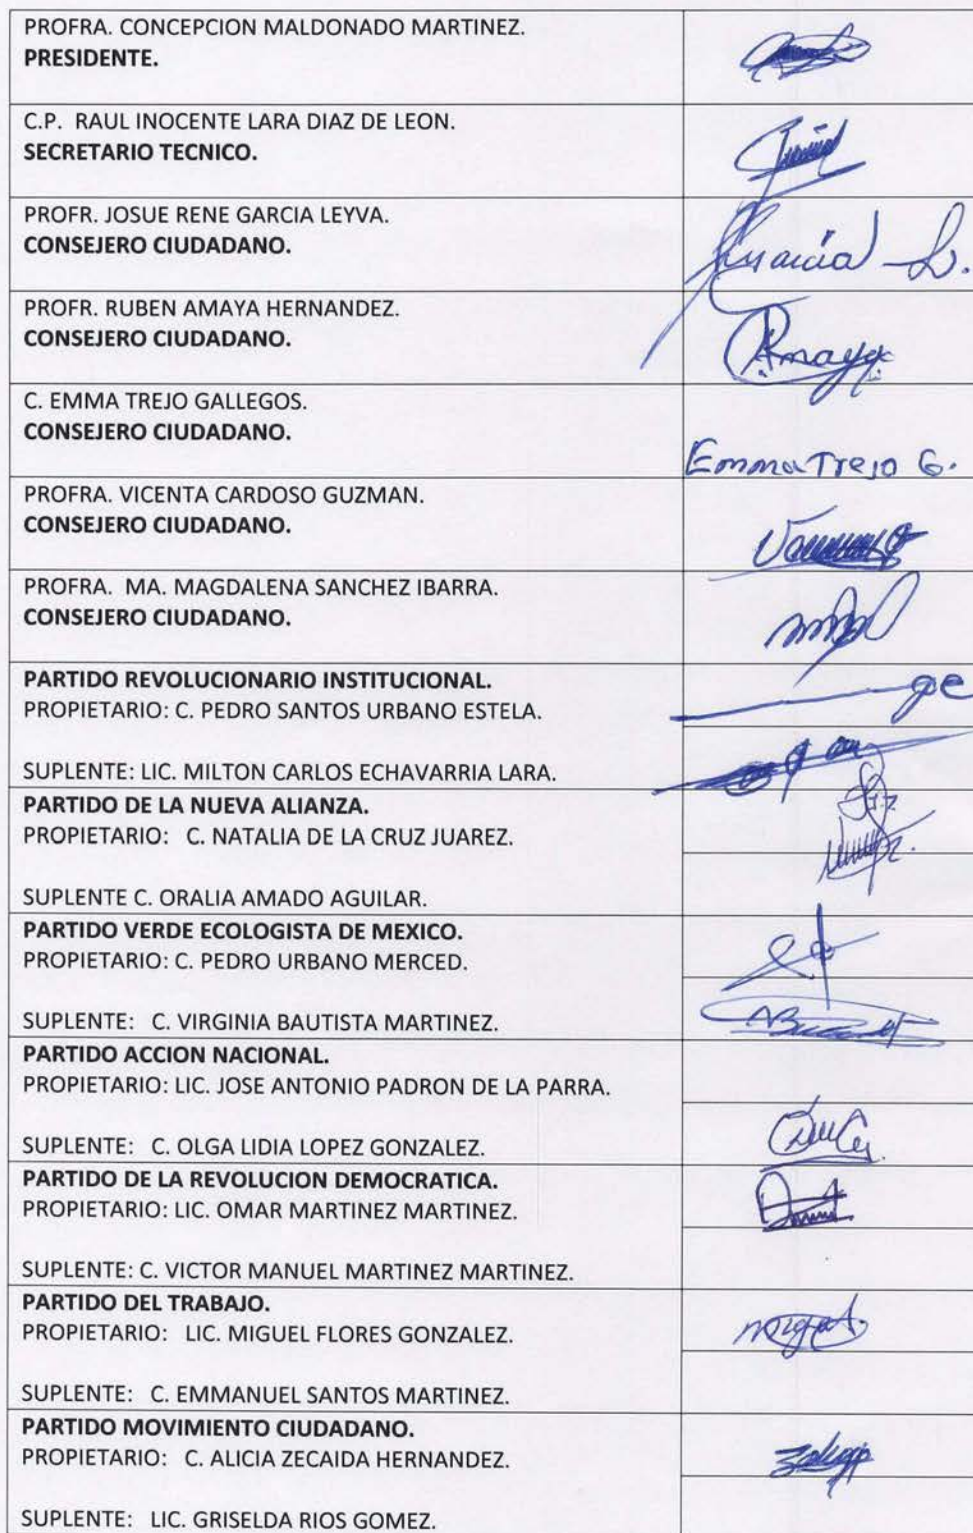 PROFRA. CONCEPCION MALDONADO MARTINEZ.
PRESIDENTE.
C.P. RAUL INOCENTE LARA DIAZ DE LEON.
SECRETARIO TECNICO.
PROFR. JOSUE RENE GARCIA LEYVA.
CONSEJERO CIUDADANO.
PROFR. RUBEN AMAYA HERNANDEZ.
CONSEJERO CIUDADANO.
Amaya
C. EMMA TREJO GALLEGOS.
CONSEJERO CIUDADANO.
Emma Trejo G.
PROFRA. VICENTA CARDOSO GUZMAN.
CONSEJERO CIUDADANO.
PROFRA. MA. MAGDALENA SANCHEZ IBARRA.
CONSEJERO CIUDADANO.
PARTIDO REVOLUCIONARIO INSTITUCIONAL.
PROPIETARIO: C. PEDRO SANTOS URBANO ESTELA.
SUPLENTE: LIC. MILTON CARLOS ECHAVARRIA LARA.
PARTIDO DE LA NUEVA ALIANZA.
PROPIETARIO: C. NATALIA DE LA CRUZ JUAREZ.
SUPLENTE C. ORALIA AMADO AGUILAR.
PARTIDO VERDE ECOLOGISTA DE MEXICO.
PROPIETARIO: C. PEDRO URBANO MERCED.
SUPLENTE: C. VIRGINIA BAUTISTA MARTINEZ.
PARTIDO ACCION NACIONAL.
PROPIETARIO: LIC. JOSE ANTONIO PADRON DE LA PARRA.
SUPLENTE: C. OLGA LIDIA LOPEZ GONZALEZ.
PARTIDO DE LA REVOLUCION DEMOCRATICA.
PROPIETARIO: LIC. OMAR MARTINEZ MARTINEZ.
SUPLENTE: C. VICTOR MANUEL MARTINEZ MARTINEZ.
PARTIDO DEL TRABAJO.
PROPIETARIO: LIC. MIGUEL FLORES GONZALEZ.
SUPLENTE: C. EMMANUEL SANTOS MARTINEZ.
PARTIDO MOVIMIENTO CIUDADANO.
PROPIETARIO: C. ALICIA ZECAIDA HERNANDEZ.
SUPLENTE: LIC. GRISELDA RIOS GOMEZ.